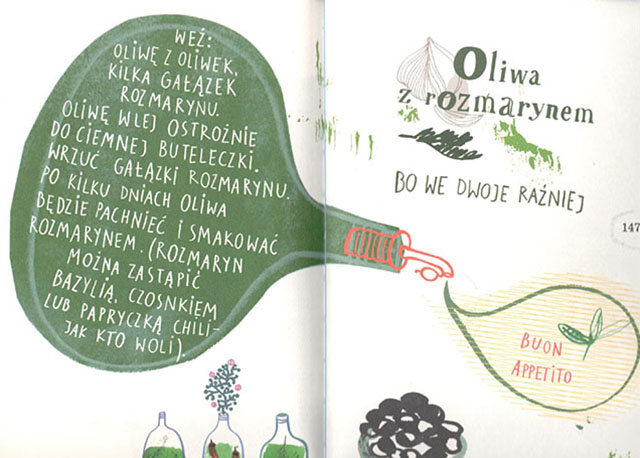 WEŹ:
OLIWĘ Z OLIWEK,
KILKA GAŁĄZEK
ROZMARYNU.
OLIWĘ WLEJ OSTROŻNIE
DO CIEMNEJ BUTELECZKI.
WRZUĆ GAŁĄZKI ROZMARYNU.
PO KILKU DNIACH OLIWA
BĘDZIE PACHNIEĆ I SMAKOWAĆ
ROZMARYNEM. (ROZMARYN
MOŻNA ZASTĄPIĆ
BAZYLIĄ, CZOSNKIEM
LUB PAPRYCZKĄ CHILI-
JAK KTO WOLI).
Oliwa
z rozmarynem
BO WE DWOJE RAŹNIEJ
147
BUON
APPETITO